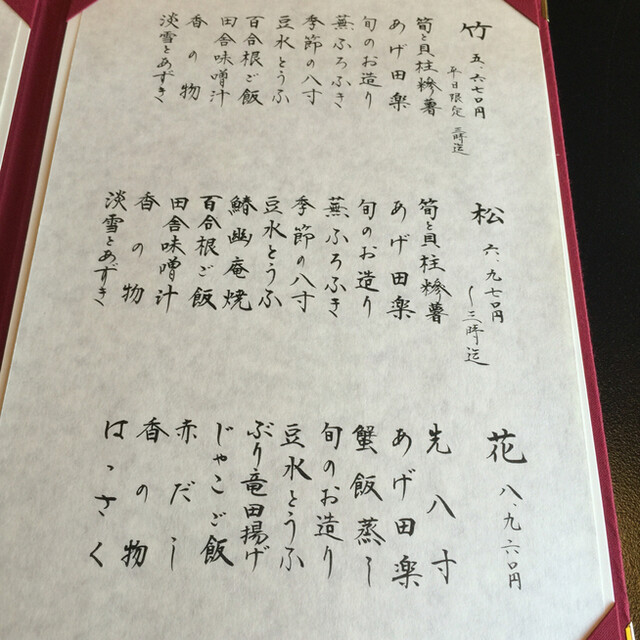 竹
五、六七〇円
平日限定 三時迄
筍と貝柱糝薯
あげ田楽
旬のお造り
蕪ふろふき
季節の八寸
豆水とうふ
百合根ご飯
田舎味噌汁
香の物
淡雪とあずき
松
六、九七〇円
〜三時迄
筍と貝柱糝薯
あげ田楽
旬のお造り
蕪ふろふき
季節の八寸
豆水とうふ
鰆幽庵焼
百合根ご飯
田舎味噌汁
香の物
淡雪とあずき
花
八、九六〇円
先八寸
あげ田楽
蟹飯蒸し
旬のお造り
豆水とうふ
ぶり竜田揚げ
じゃこご飯
赤だし
香の物
はっさく